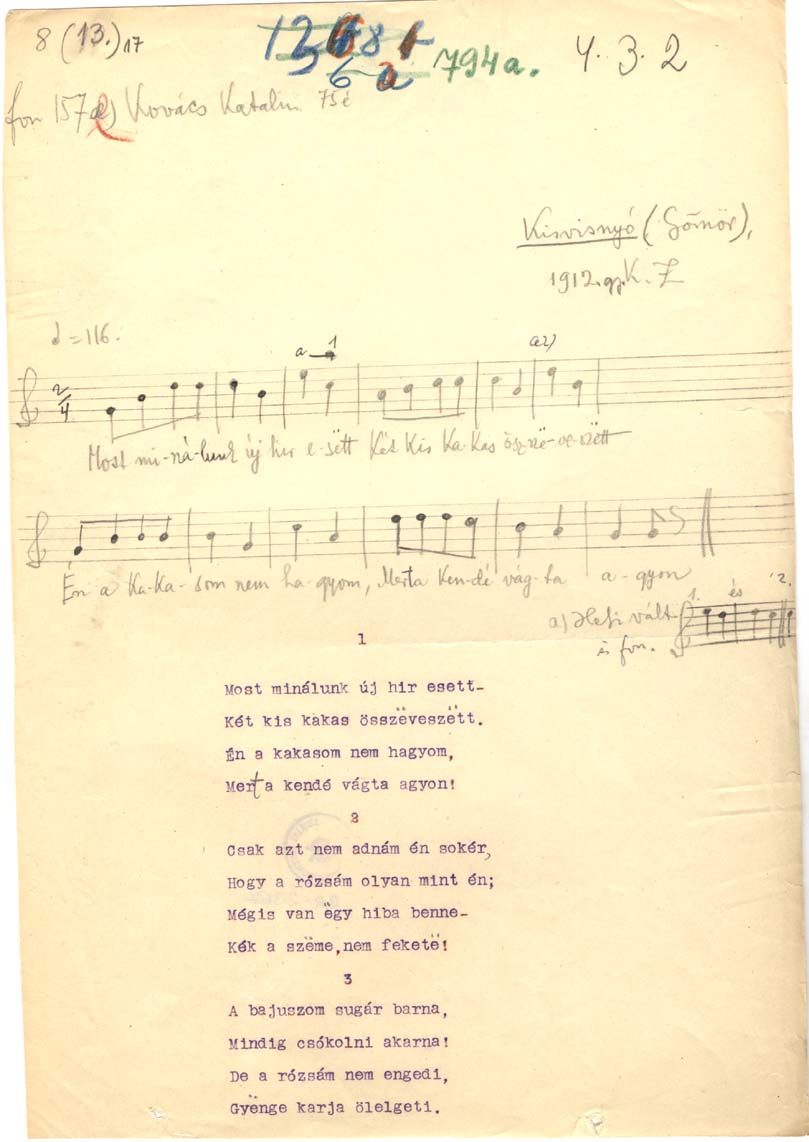 8 (13.) 17
794a. 4. 3. 2
fon 157 Kovács Katalin 75 é
Kisvisnyó (Gömör),
1912. gy. K. Z
= 116.
a 1 a2)
2/4
Most mi-ná-lunk új hir e-sëtt Két Kis Ka-kas ösz-szë-ve-szëtt
Én a Ka-ka-som nem ha-gyom, Merta Ken-dé vág-ta a-gyon
1. és 2.
a) Heji vált
és fon.
1
Most minálunk új hir esett-
Két kis kakas összëveszëtt.
Én a kakasom nem hagyom,
Mert a kendé vágta agyon!
2
Csak azt nem adnám én sokér,
Hogy a rózsám olyan mint én;
Mégis van ëgy hiba benne-
Kék a szëme,nem feketë!
3
A bajuszom sugár barna,
Mindig csókolni akarna!
De a rózsám nem engedi,
Gyënge karja ölelgeti.